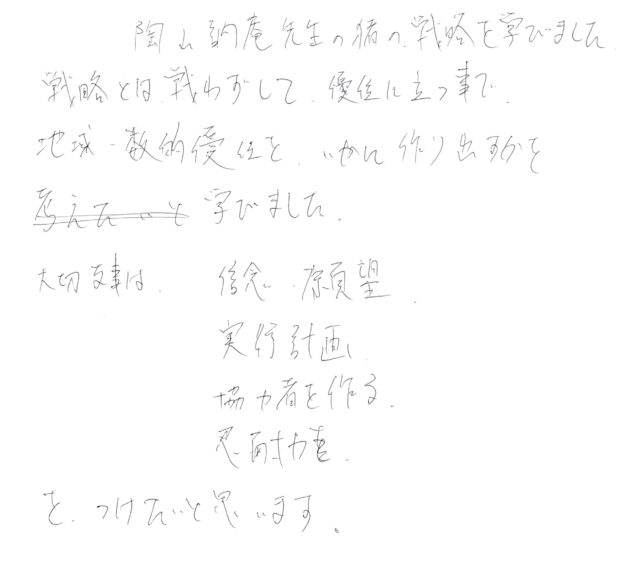 陶山訥庵先生の猪の、戦略を学びました
戦略とは、戦わずして、優位に立つ事で、
地域・数的優位を、いかに作り出すかを
考えたいと 学びました。
大切な事は、 信念、願望、
実行計画、
協力者を作る、
忍耐力を、
を、つけたいと思います。